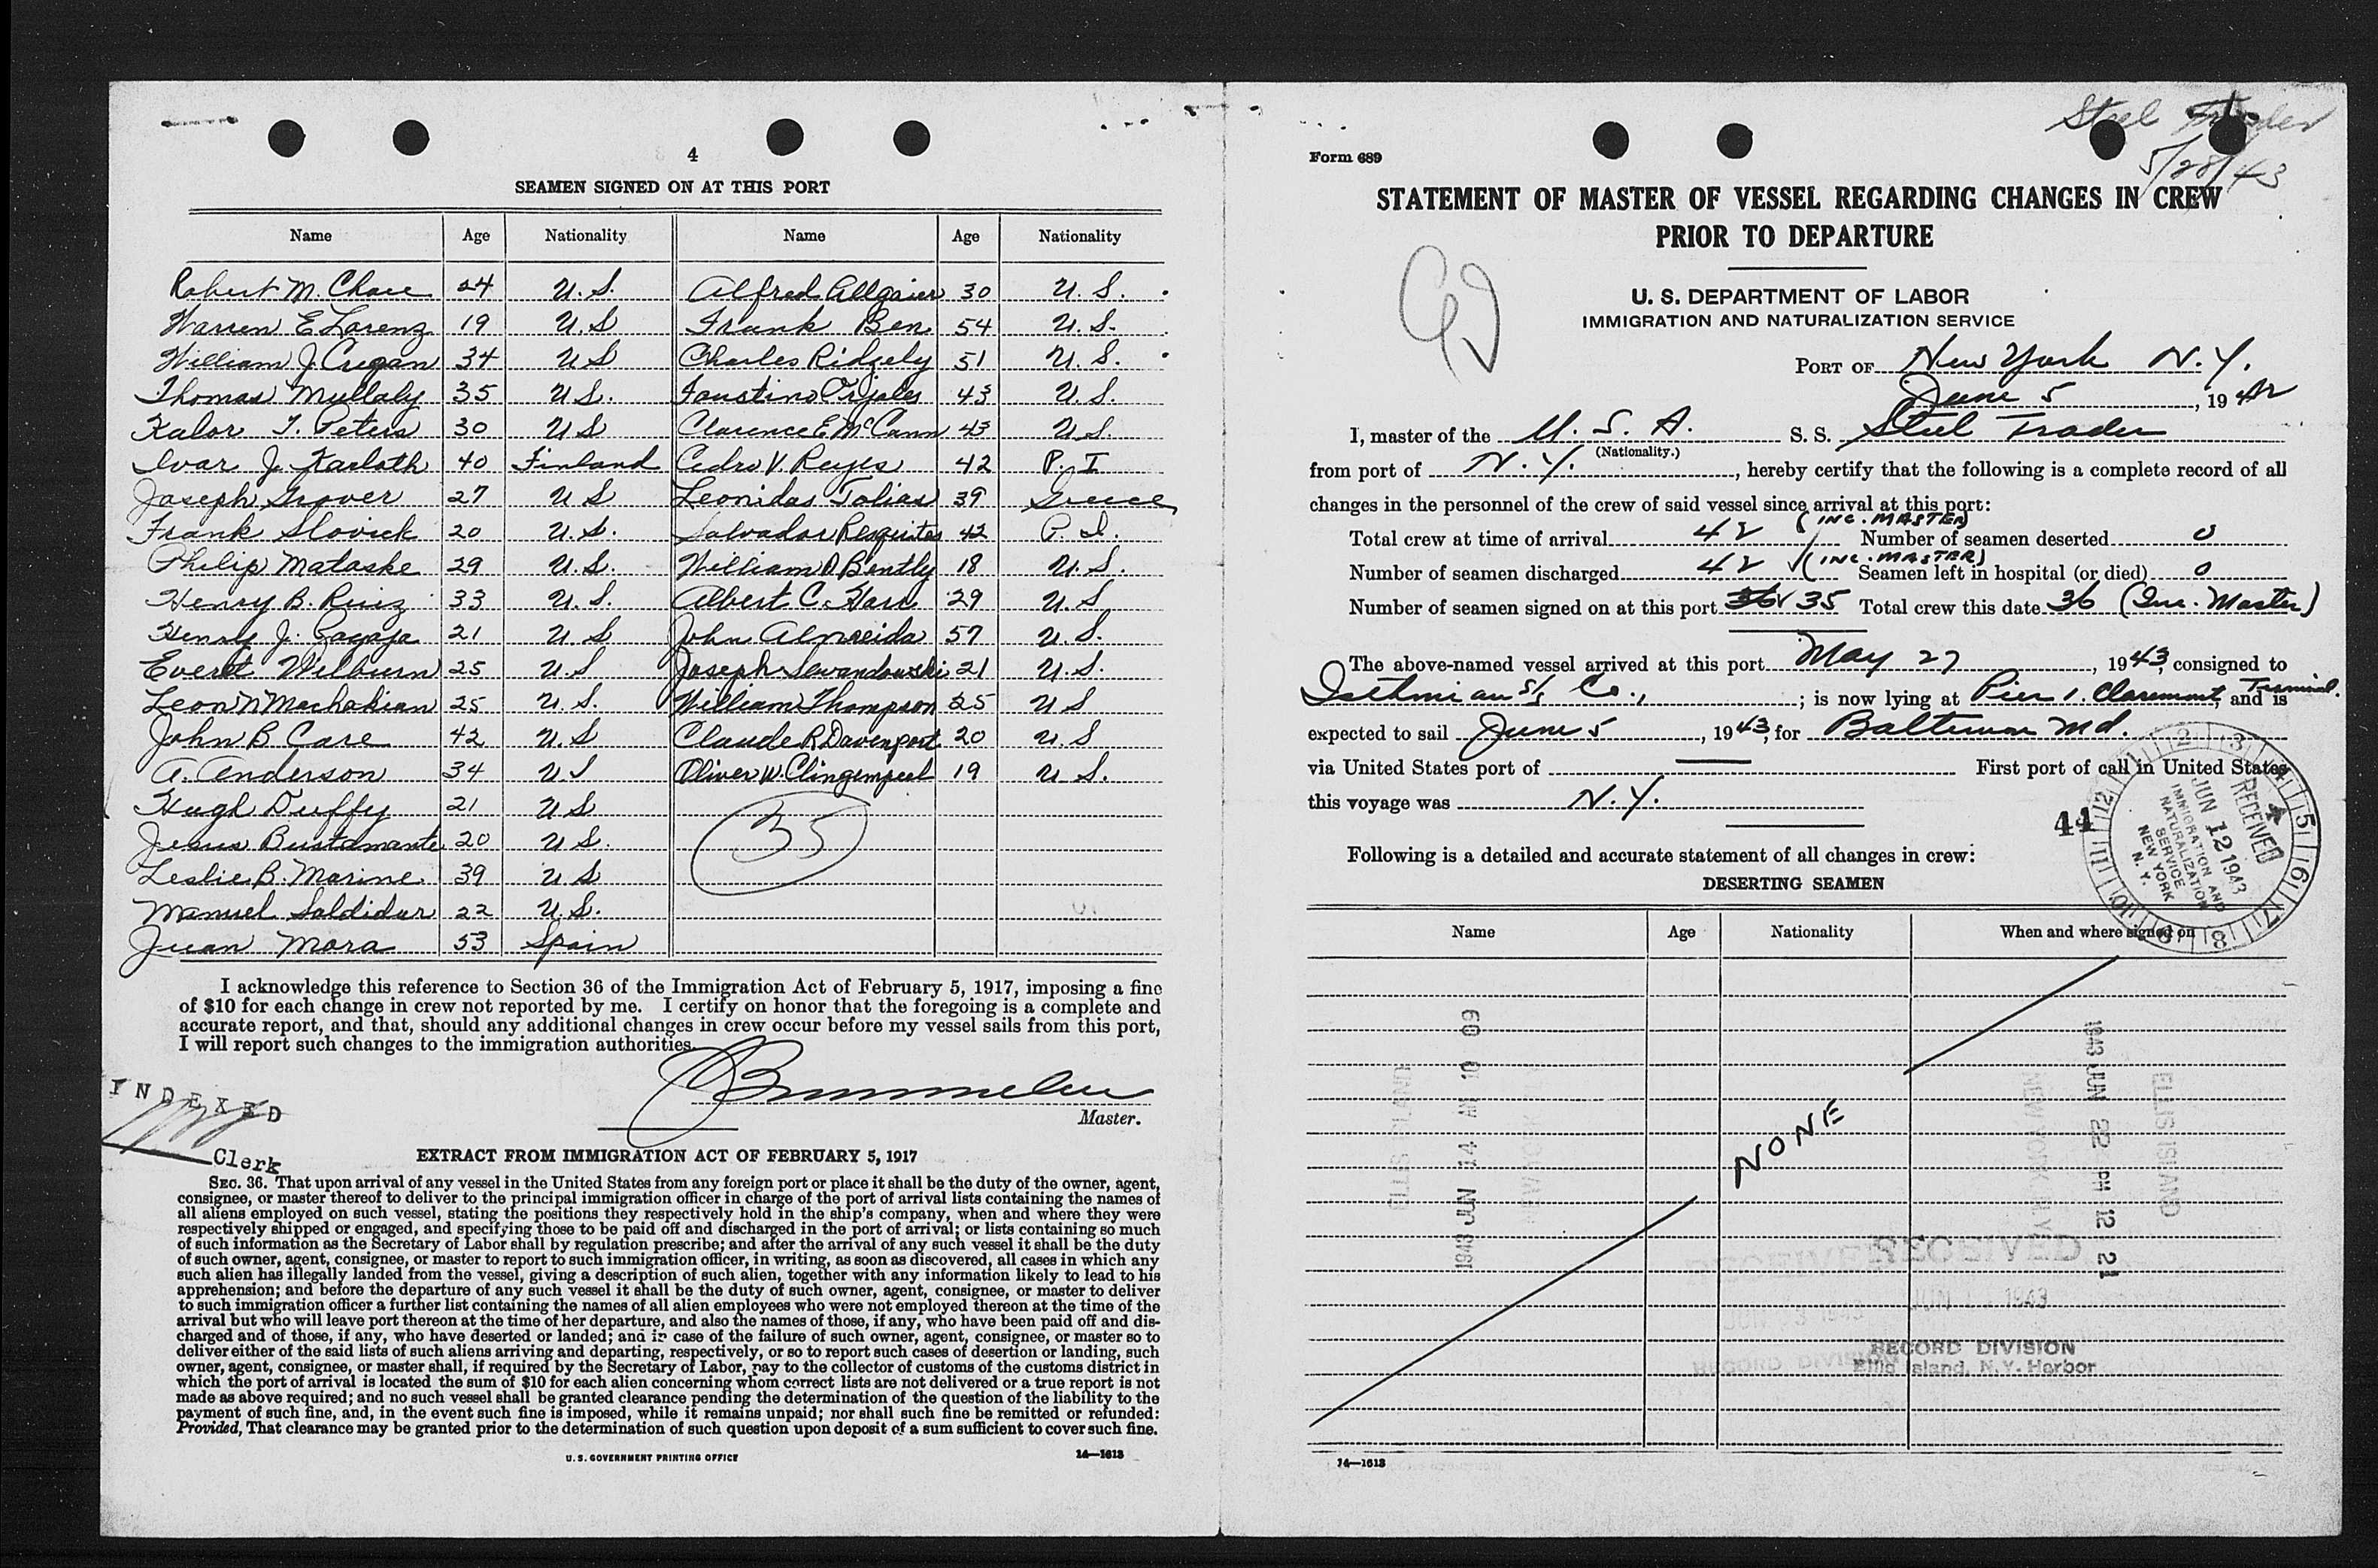 4
SEAMEN SIGNED ON AT THIS PORT
Name Age Nationality Name Age Nationality
Robert M. Chace 24 U.S. Alfred Allgaier 30 U.S.
Warren E Lorenz 19 U.S Frank Ben 54 U.S.
William J. Cregan 34 U S Charles Ridgely 51 U.S.
Thomas Mullaly 35 U S. Faustino 43 U S.
Kalor T. Peters 30 U S Clarence E McCann 43 U S.
Ivar J. Karloth 40 Finland Cedro V. Reyes 42 P. I
Joseph Grover 27 U S Leonidas Tolias 39 Greece
Frank Slovick 20 U.S. Salvador Requitos 42 P. I.
Philip Mataske 29 U.S. William D Bently 18 U.S.
Henry B. Ruiz 33 U.S. Albert C. 29 U S
Henry J. 21 U S John Almeida 57 U.S.
Everet Wilburn 25 U S Joseph Lewandowski 21 U.S.
Leon N Machakian 25 U.S. William Thompson 25 U S
John B Care 42 U.S Claude R Davenport 20 U S
A. Anderson 34 U S Oliver W. Clingempeel 19 U S.
Hugh Duffy 21 U S
Jesus Bustamante 20 U S. 35
Leslie B. Marine 39 U S
Manuel Saldidar 22 U.S.
Juan Mora 53 Spain
I acknowledge this reference to Section 36 of the Immigration Act of February 5, 1917, imposing a fine
of $10 for each change in crew not reported by me. I certify on honor that the foregoing is a complete and
accurate report, and that, should any additional changes in crew occur before my vessel sails from this port,
I will report such changes to the immigration authorities.
Master.
INDEXED
Clerk
EXTRACT FROM IMMIGRATION ACT OF FEBRUARY 5, 1917
SEC. 36. That upon arrival of any vessel in the United States from any foreign port or place it shall be the duty of the owner, agent,
consignee, or master thereof to deliver to the principal immigration officer in charge of the port of arrival lists containing the names of
all aliens employed on such vessel, stating the positions they respectively hold in the ship's company, when and where they were
respectively shipped or engaged, and specifying those to be paid off and discharged in the port of arrival; or lists containing so much
of such information as the Secretary of Labor shall by regulation prescribe; and after the arrival of any such vessel it shall be the duty
of such owner, agent, consignee, or master to report to such immigration officer, in writing, as soon as discovered, all cases in which any
such alien has illegally landed from the vessel, giving a description of such alien, together with any information likely to lead to his
apprehension; and before the departure of any such vessel it shall be the duty of such owner, agent, consignee, or master to deliver
to such immigration officer a further list containing the names of all alien employees who were not employed thereon at the time of the
arrival but who will leave port thereon at the time of her departure, and also the names of those, if any, who have been paid off and dis-
charged and of those, if any, who have deserted or landed; and in case of the failure of such owner, agent, consignee, or master so to
deliver either of the said lists of such aliens arriving and departing, respectively, or so to report such cases of desertion or landing, such
owner, agent, consignee, or master shall, if required by the Secretary of Labor, pay to the collector of customs of the customs district in
which the port of arrival is located the sum of $10 for each alien concerning whom correct lists are not delivered or a true report is not
made as above required; and no such vessel shall be granted clearance pending the determination of the question of the liability to the
payment of such fine, and, in the event such fine is imposed, while it remains unpaid; nor shall such fine be remitted or refunded:
Provided, That clearance may be granted prior to the determination of such question upon deposit of a sum sufficient to cover such fine.
U. S. GOVERNMENT PRINTING OFFICE 14—1613
Steel Trader
5/28/43
Form 689
STATEMENT OF MASTER OF VESSEL REGARDING CHANGES IN CREW
PRIOR TO DEPARTURE
U. S. DEPARTMENT OF LABOR
IMMIGRATION AND NATURALIZATION SERVICE
PORT OF New York N.Y.
June 5, 1942
I, master of the U. S. A. S. S. Steel Trader
(Nationality.)
from port of N.Y., hereby certify that the following is a complete record of all
changes in the personnel of the crew of said vessel since arrival at this port:
Total crew at time of arrival 42 (INC. MASTER) Number of seamen deserted 0
Number of seamen discharged 42 (INC. MASTER) Seamen left in hospital (or died) 0
Number of seamen signed on at this port 36 35 Total crew this date 36 (Inc. Master)
The above-named vessel arrived at this port May 27, 1943, consigned to
Isthmian S/S Co., ; is now lying at Pier 1. Claremont Terminal, and is
expected to sail June 5, 1943, for Baltimore Md.
via United States port of First port of call in United States
this voyage was N.Y.
44
RECEIVED
JUN 12 1943
IMMIGRATION AND
NATURALIZATION
SERVICE
NEW YORK
N. Y.
Following is a detailed and accurate statement of all changes in crew:
DESERTING SEAMEN
Name Age Nationality When and where signed on
NONE
1943 JUN 14 AM 10 09
ELLIS ISLAND
1943 JUN 22 PM 12 21
ELLIS ISLAND
RECEIVED
1943
RECORD DIVISION
Ellis Island, N.Y. Harbor
14—1613